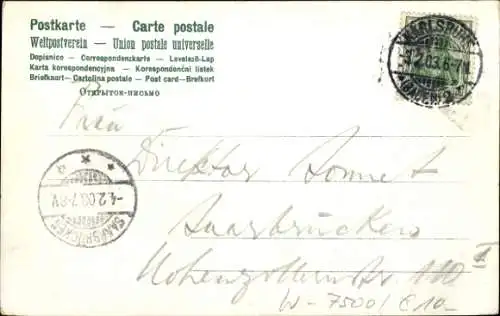 Postkarte — Carte postale
Weltpostverein — Union postale universelle
Dopisnice — Correspondenzkarte — Levelező-Lap
Karta korespondencyjna — Korespondenční lístek
Briefkaart — Cartolina postale — Post card — Brefkort
Открытое письмо
KARLSRUHE
4.2.03.6-7
(BADEN) 2
Frau
Direktor Sonnet
-4.2.03.7-8V
SAARBRÜCKEN
Saarbrücken
Hohenzollernstr. 110
W-7500/ €10-